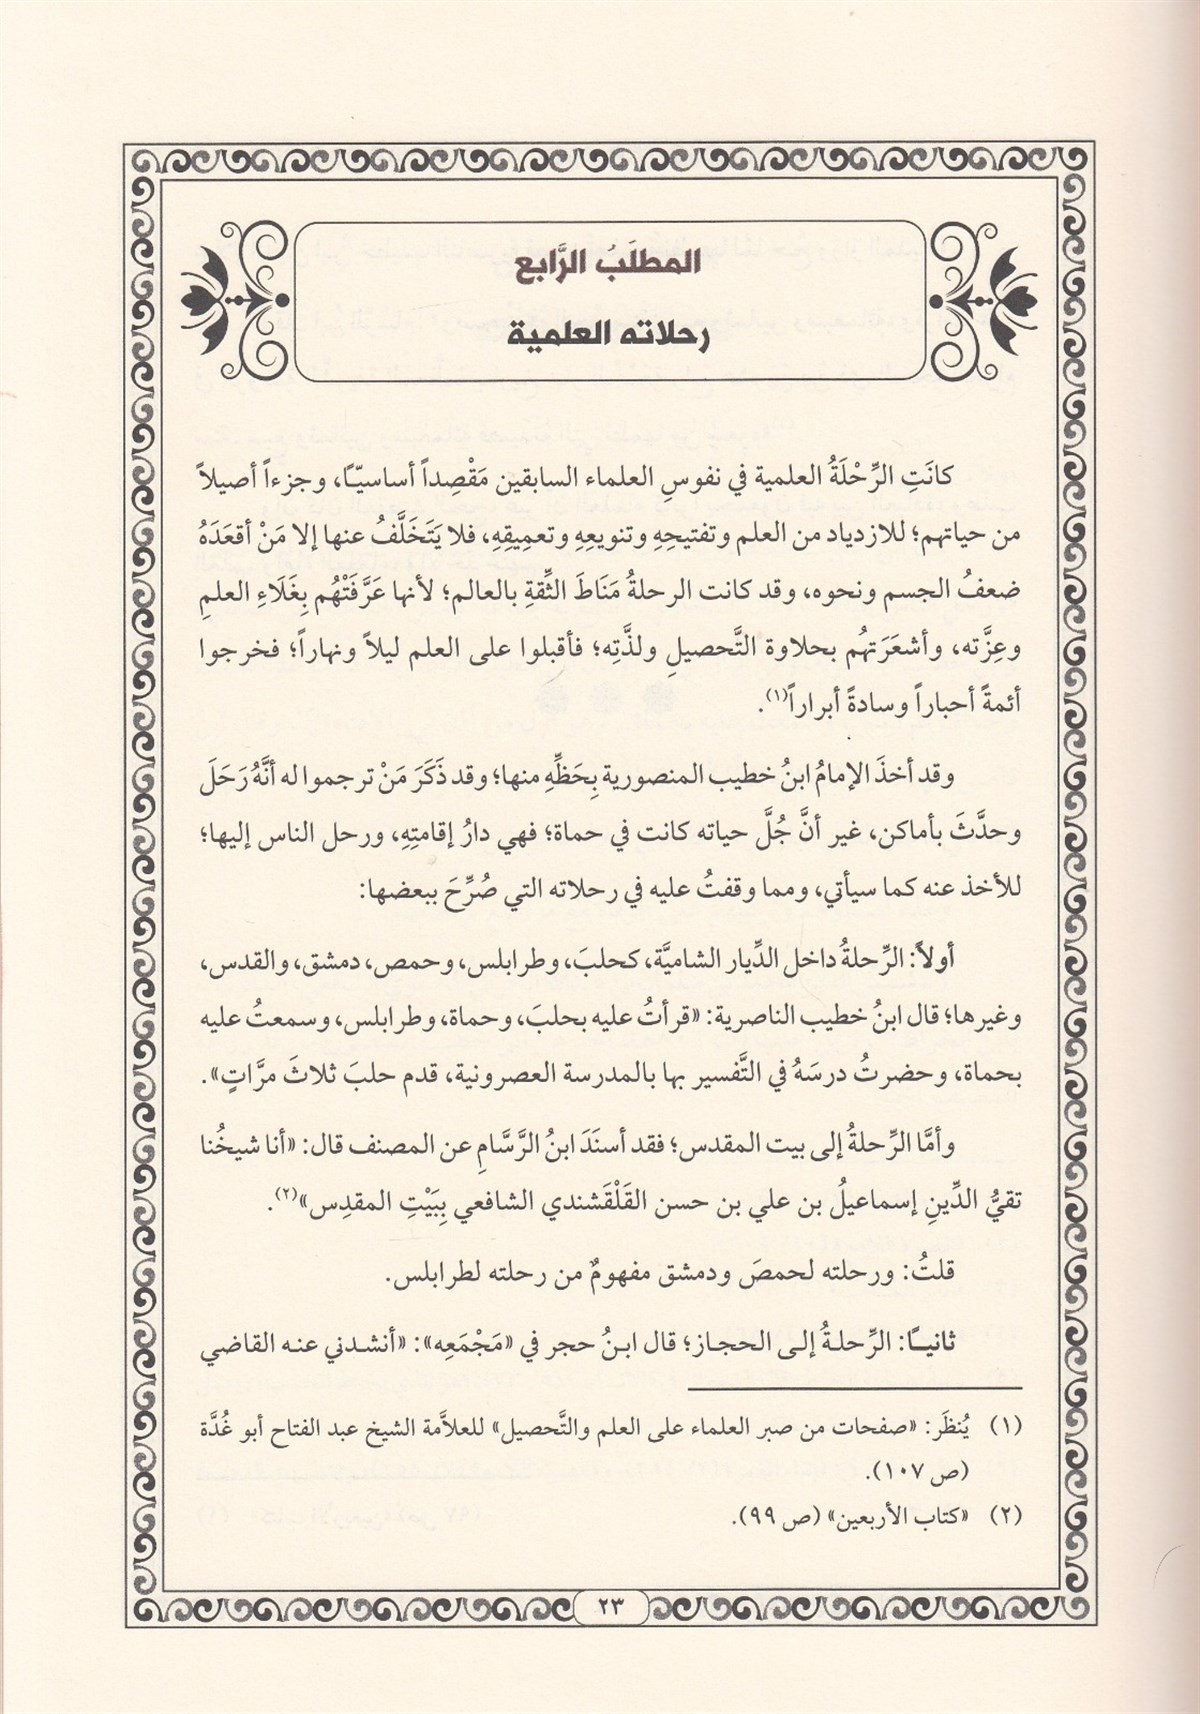 المطلَبُ الرَّابع
رحلاته العلمية
كانَتِ الرِّحْلَةُ العلمية في نفوسِ العلماء السابقين مَقْصِداً أساسيّاً، وجزءاً أصيلاً
من حياتهم؛ للازدياد من العلم وتفتيحِهِ وتنويعِهِ وتعميقِهِ، فلا يَتَخَلَّفُ عنها إلا مَنْ أقعَدَهُ
ضعفُ الجسم ونحوه، وقد كانت الرحلةُ مَنَاطَ الثِّقةِ بالعالم؛ لأنها عَرَّفَتْهُم بِغَلَاءِ العلمِ
وعِزَّته، وأشعَرَتهُم بحلاوة التَّحصيلِ ولذَّتِه؛ فأقبلوا على العلم ليلاً ونهاراً؛ فخرجوا
أئمةً أحباراً وسادةً أبراراً(١).
وقد أخذَ الإمامُ ابنُ خطيب المنصورية بِحَظِّهِ منها؛ وقد ذَكَرَ مَنْ ترجموا له أنَّهُ رَحَلَ
وحدَّثَ بأماكن، غير أنَّ جُلَّ حياته كانت في حماة؛ فهي دارُ إقامتِهِ، ورحل الناس إليها؛
للأخذ عنه كما سيأتي، ومما وقفتُ عليه في رحلاته التي صُرِّحَ ببعضها:
أولاً: الرِّحلةُ داخل الدِّيار الشاميَّة، كحلبَ، وطرابلس، وحمص، دمشق، والقدس،
وغيرها؛ قال ابنُ خطيب الناصرية: «قرأتُ عليه بحلبَ، وحماة، وطرابلس، وسمعتُ عليه
بحماة، وحضرتُ درسَهُ في التَّفسير بها بالمدرسة العصرونية، قدم حلبَ ثلاثَ مرَّاتٍ».
وأمَّا الرِّحلةُ إلى بيت المقدس؛ فقد أسنَدَ ابنُ الرَّسَّامِ عن المصنف قال: «أنا شيخُنا
تقيُّ الدِّينِ إسماعيلُ بن علي بن حسن القَلْقَشندي الشافعي بِبَيْتِ المقدِس»(٢).
قلتُ: ورحلته لحمصَ ودمشق مفهومٌ من رحلته لطرابلس.
ثانيـاً: الرِّحلـةُ إلـى الحجـاز؛ قال ابـنُ حجر في «مَجْمَعِه»: «أنشـدني عنـه القاضي
(١) يُنظَر: «صفحات من صبر العلماء على العلم والتَّحصيل» للعلاَّمة الشيخ عبد الفتاح أبو غُدَّة
(ص ١٠٧).
(٢) «كتاب الأربعين» (ص ٩٩).
٢٣